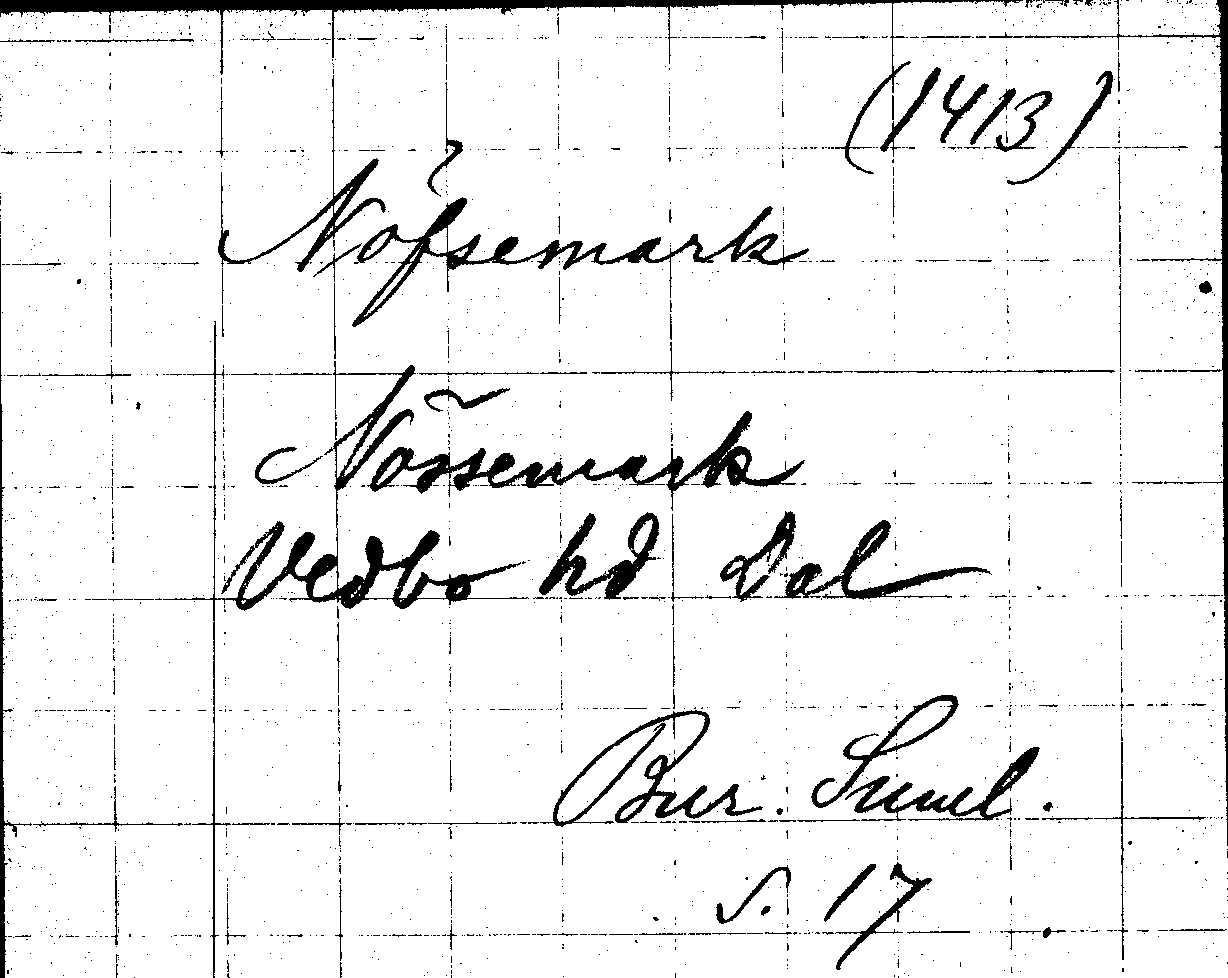 (1413)
Nöfsemark
Nössemark
Vedbo hd Dal
Bur. Suml.
s. 17